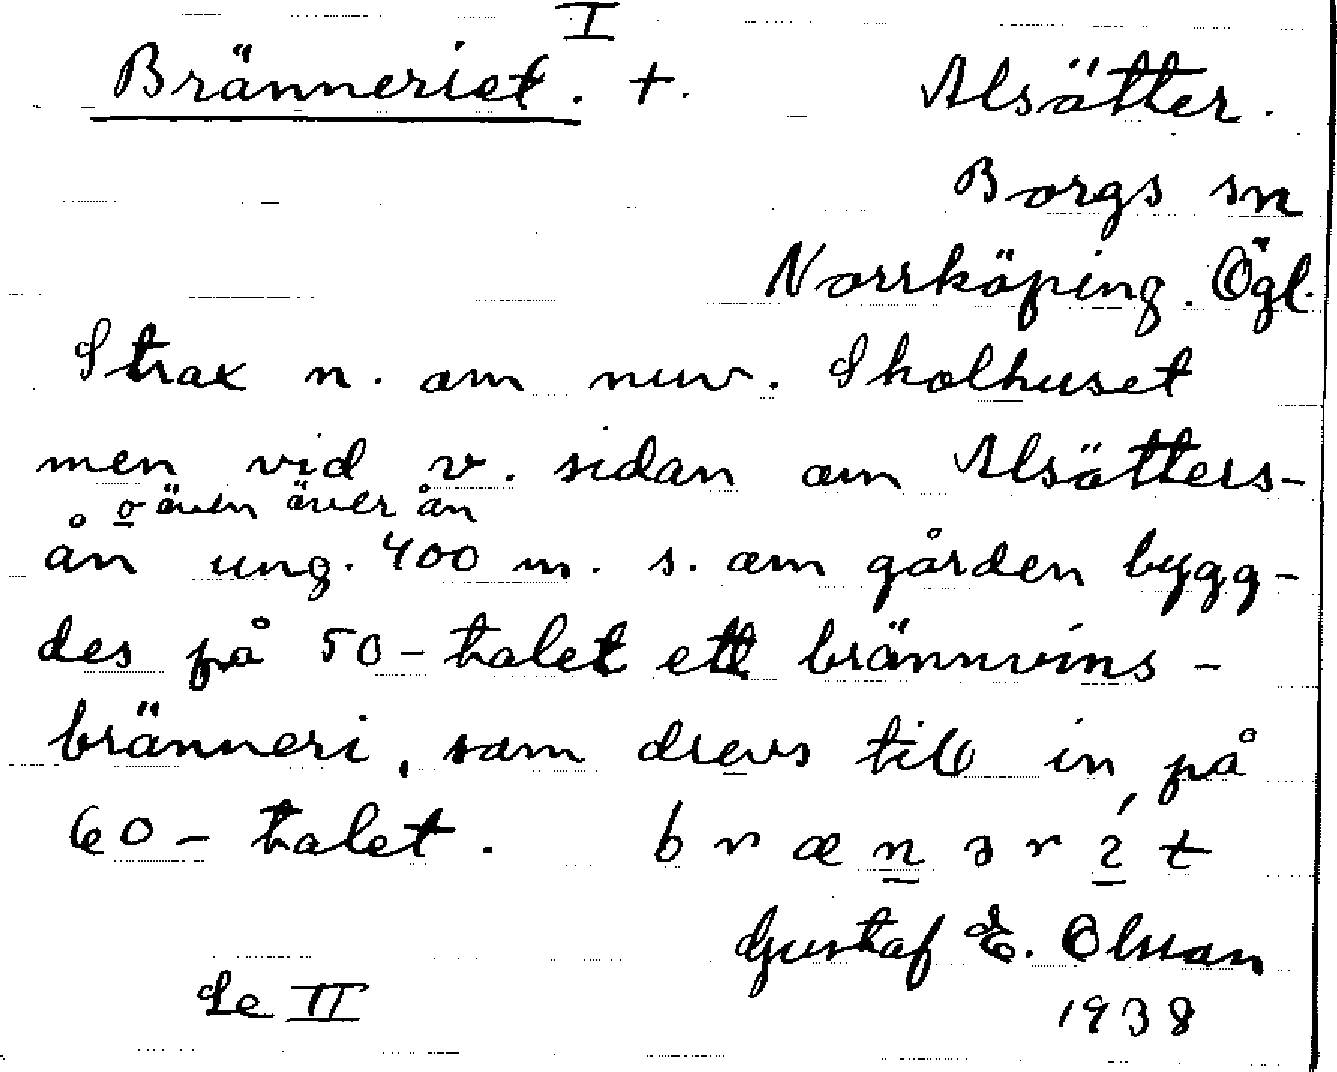 I
Bränneriet. +. Alsätter.
Borgs sn
Norrköping. Ögl.
Strax n. om nuv. Skolhuset
men vid v. sidan om Alsätters-
o även över ån
ån ung. 400 m. s. om gården bygg-
des på 50-talet ett brännvins-
bränneri, som drevs till in på
60-talet. brænərít
Gustaf E. Olsson
Se II 1938